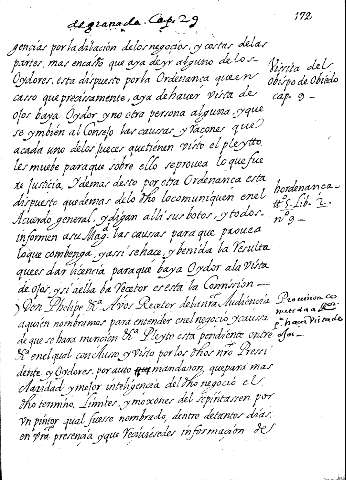 de granada. Cap. 29
172
gencias por la dilacion de los negocios, y costas de las
partes, mas en casso que aya de yr alguno de los
Oydores, esta dispuesto por la Ordenanca que en
casso que precisamente, aya de haver vista de
ojos baya Oydor, y no otra persona alguna, y que
se ymbien al Consejo las causas, y Racones que
a cada uno de los Jueces que tienen visto el pleytto
les muebe para que sobre ello se provea lo que fue
re Justicia, Y demas desto por otra Ordenanca esta
dispuesto que demas de lo dho lo comuniquen en el
Acuerdo general, y digan alla sus botos, y todos
informen a su Magd. las causas para que provea
lo que combenga, y assi se hace, y benida la Resulta
que es dar licencia para que baya Oydor a la Vista
de ojos, y si a ella ba Recetor es esta la Comission
Visita del
Obispo de Obiedo
cap. 9
hordenanca
ttº 5. Lib. 2.
nº 9
Don Phelipe &ª A vos Recetor de la nra Audiencia
a quien nombramos para entender en el negocio y causa
de que se hara muncion &ª Pleyto esta pendiente entre
&ª en el qual con Auto, y visto por los dhos nro Pressi
dente, y Oydores, por auto mandaron, que para mas
claridad, y mejor inteligencia del dho negocio el
dho termino, Limites, y moxones del se pintassen por
un pintor qual fuesse nombrado, dentro de tantos dias,
en vrā presencia, y que Reciviesedes informacion de
Provision co
metida a
pª hacer Vista de
ojos